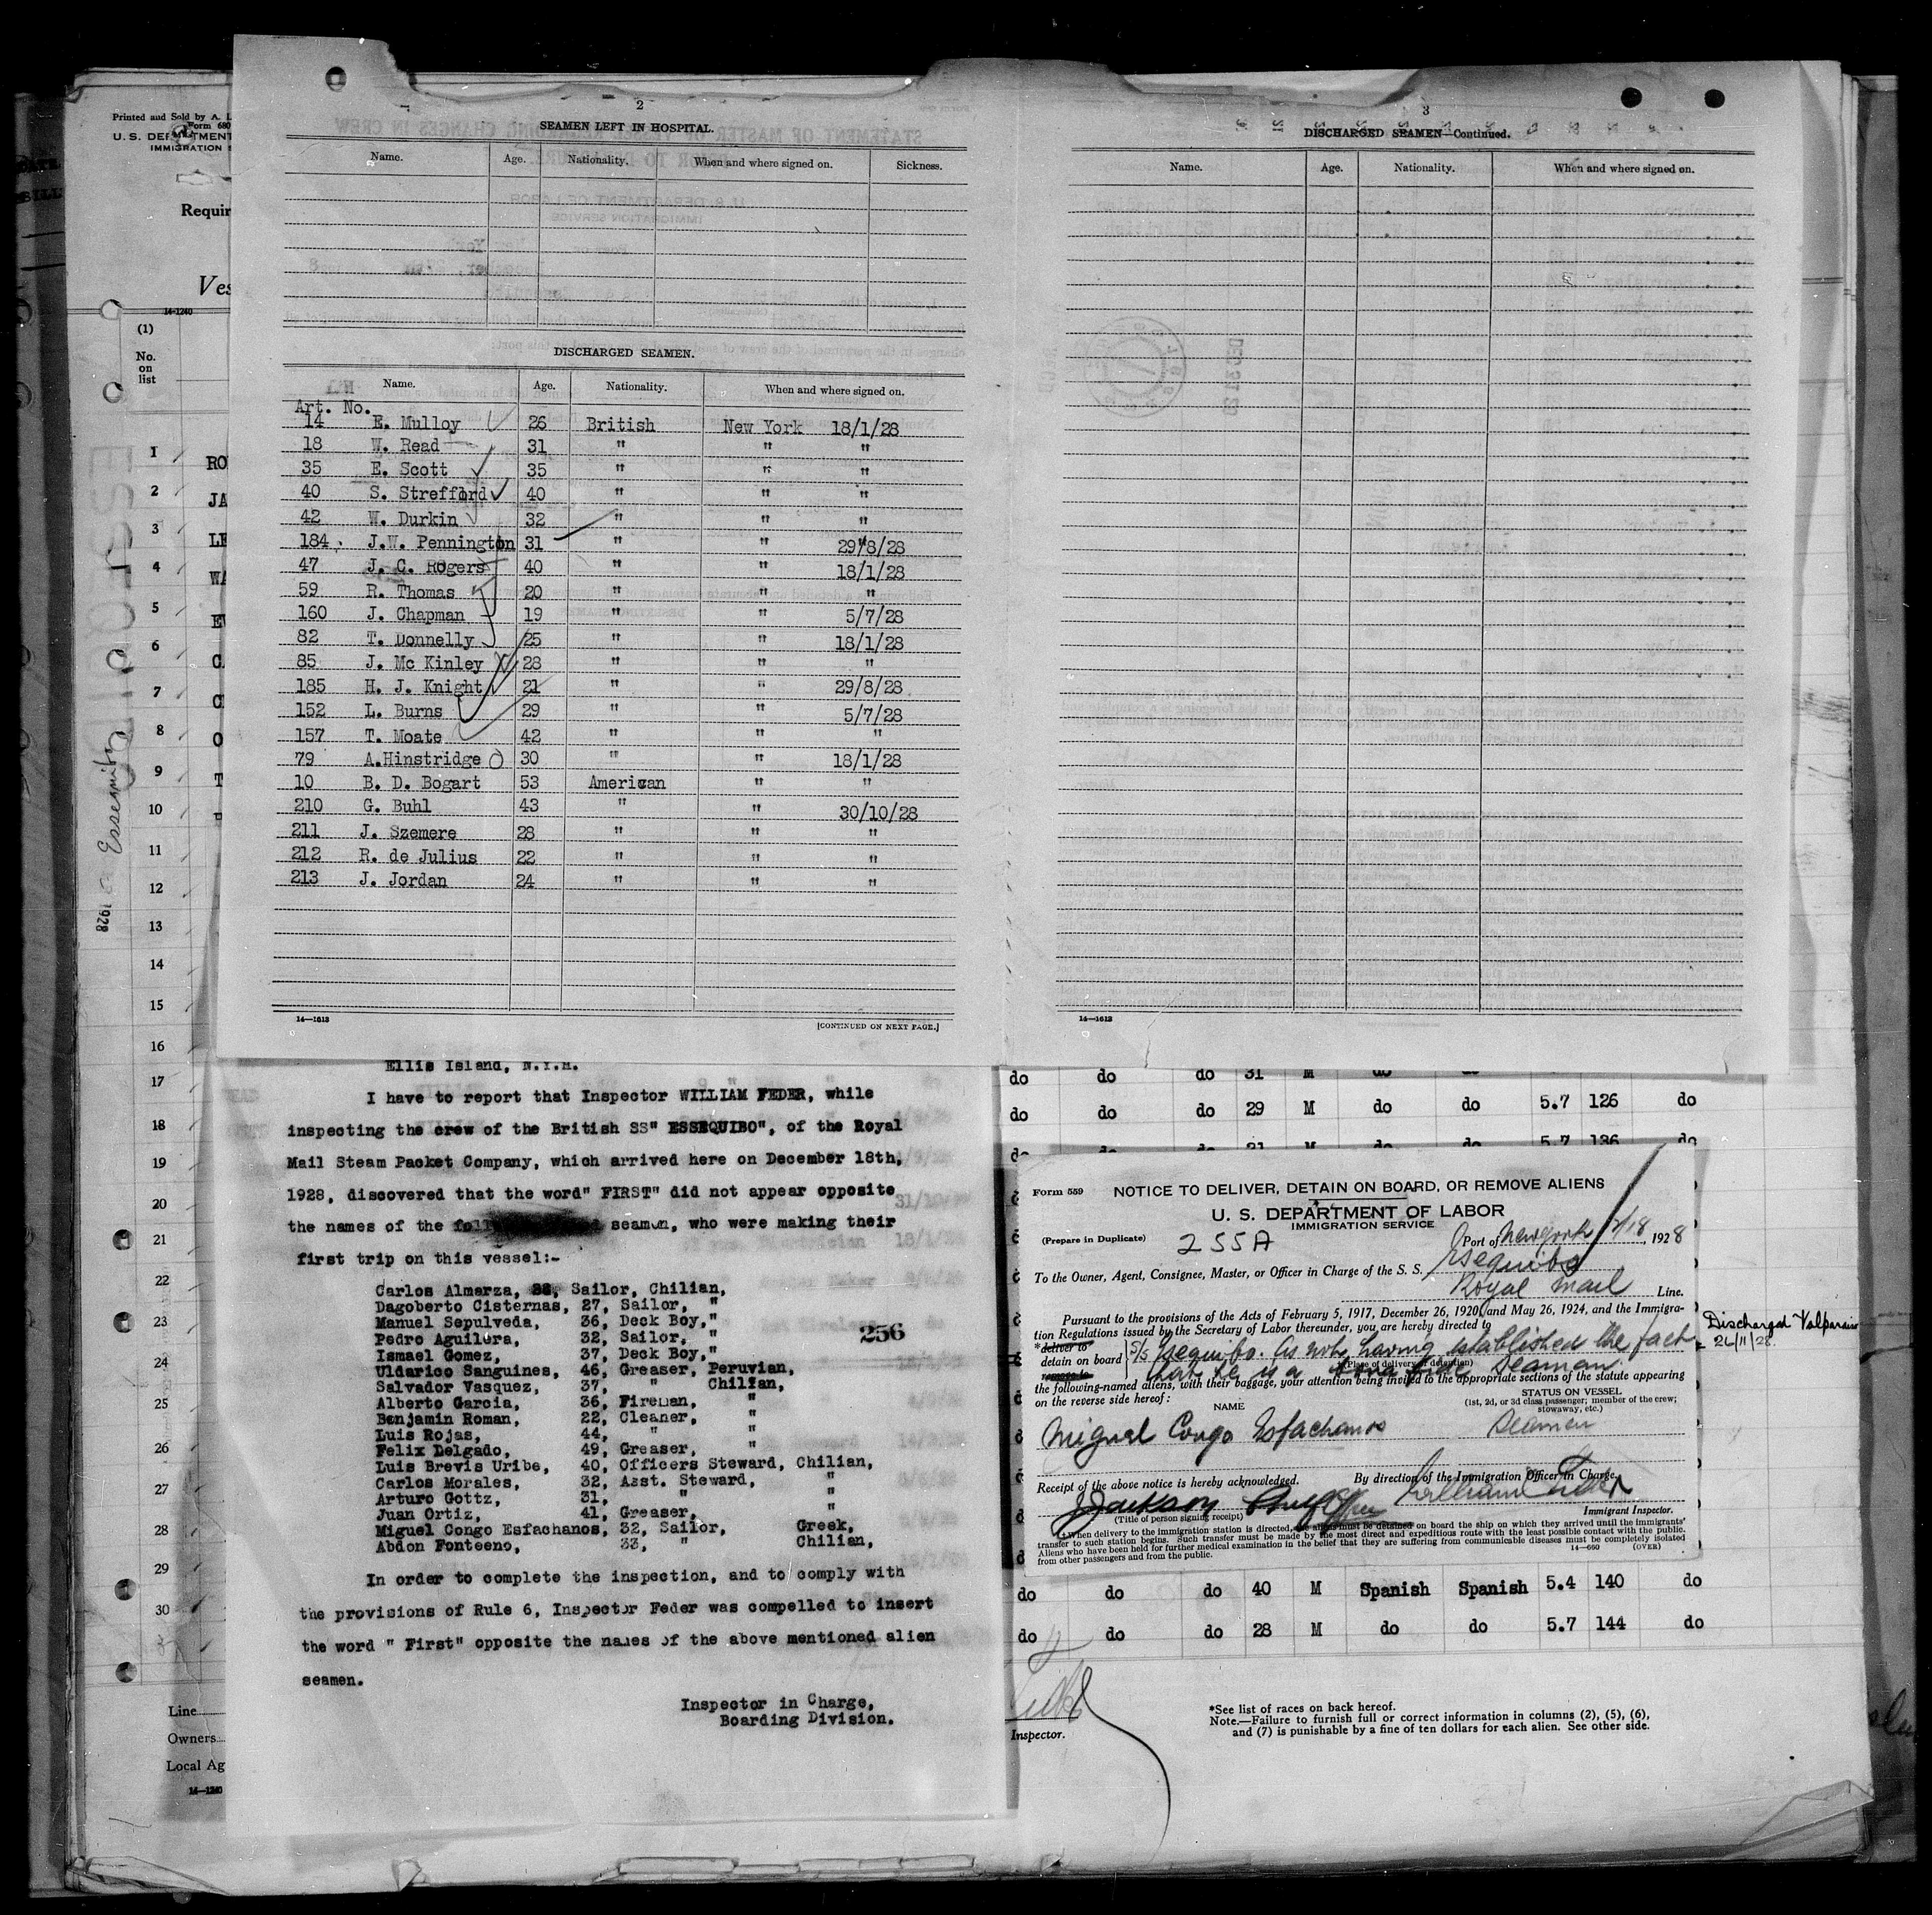 Printed and Sold by A. L
Form 680
U. S. DEPARTMENT
IMMIGRATION S
Requir
Ves
14-1240
(1)
No.
on
list
1
RO
2
JA
3
LE
4
WA
5
EV
6
CA
7
CH
8
O
9
T
10
11
12
13
14
15
16
17
18
19
20
21
22
23
24
25
26
27
28
29
30
Line
Owners
Local Ag
14-1240
ESSEQUIBO
1928
2
SEAMEN LEFT IN HOSPITAL.
Name. Age. Nationality. When and where signed on. Sickness.
DISCHARGED SEAMEN.
Name. Age. Nationality. When and where signed on.
Art. No.
14 E. Mulloy 26 British New York 18/1/28
18 W. Read 31 " " "
35 E. Scott 35 " " "
40 S. Strefford 40 " " "
42 W. Durkin 32 " " "
184 J.W. Pennington 31 " " 29/8/28
47 J. C. Rogers 40 " " 18/1/28
59 R. Thomas 20 " " "
160 J. Chapman 19 " " 5/7/28
82 T. Donnelly 25 " " 18/1/28
85 J. Mc Kinley 28 " " "
185 H. J. Knight 21 " " 29/8/28
152 L. Burns 29 " " 5/7/28
157 T. Moate 42 " " "
79 A.Hinstridge 30 " " 18/1/28
10 B. D. Bogart 53 American " "
210 G. Buhl 43 " " 30/10/28
211 J. Szemere 28 " " "
212 R. de Julius 22 " " "
213 J. Jordan 24 " " "
14—1613
[CONTINUED ON NEXT PAGE.]
3
DISCHARGED SEAMEN—Continued.
Name. Age. Nationality. When and where signed on.
14—1613
Ellis Island, N.Y.H.
I have to report that Inspector WILLIAM FEDER, while
inspecting the crew of the British SS" ESSEQUIBO", of the Royal
Mail Steam Packet Company, which arrived here on December 18th,
1928, discovered that the word" FIRST" did not appear opposite
the names of the seamen, who were making their
first trip on this vessel:-
Carlos Almarza, Sailor, Chilian,
Dagoberto Cisternas, 27, Sailor, "
Manuel Sepulveda, 36, Deck Boy," 
Pedro Aguilera, 32, Sailor, "
256
Ismael Gomez, 37, Deck Boy,"
Uldarico Sanguines, 46, Greaser, Peruvian,
Salvador Vasquez, 37, " Chilian,
Alberto Garcia, 36, Fireman, "
Benjamin Roman, 22, Cleaner, "
Luis Rojas, 44, " "
Felix Delgado, 49, Greaser, "
Luis Brevis Uribe, 40, Officers Steward, Chilian,
Carlos Morales, 32, Asst. Steward, "
Arturo Gottz, 31, " "
Juan Ortiz, 41, Greaser, "
Miguel Congo Esfachanos, 32, Sailor, Greek,
Abdon Fonteeno, 33, " Chilian,
In order to complete the inspection, and to comply with
the provisions of Rule 6, Inspector Feder was compelled to insert
the word " First" opposite the names of the above mentioned alien
seamen.
Inspector in Charge,
Boarding Division.
do do do 31 M do do
do do do 29 M do do 5.7 126 do
21 M do do 5.7 136 do
Form 559
NOTICE TO DELIVER, DETAIN ON BOARD, OR REMOVE ALIENS
U. S. DEPARTMENT OF LABOR
IMMIGRATION SERVICE
(Prepare in Duplicate) 255A Port of New York 12/18, 1928
To the Owner, Agent, Consignee, Master, or Officer in Charge of the S. S. Esequibo
Royal Mail Line.
Pursuant to the provisions of the Acts of February 5, 1917, December 26, 1920, and May 26, 1924, and the Immigra-
tion Regulations issued by the Secretary of Labor thereunder, you are hereby directed to
*deliver to
detain on board S/S Esequibo. As not having established the fact
remove to
(Place of delivery or detention)
that he is a bona fide seaman.
the following-named aliens, with their baggage, your attention being invited to the appropriate sections of the statute appearing
on the reverse side hereof:
NAME
STATUS ON VESSEL
(1st, 2d, or 3d class passenger; member of the crew;
stowaway, etc.)
Miguel Congo Esfachanos Seaman
Receipt of the above notice is hereby acknowledged. By direction of the Immigration Officer in Charge,
J Jackson Chief Officer William Feder
(Title of person signing receipt) Immigrant Inspector.
*When delivery to the immigration station is directed, the aliens must be detained on board the ship on which they arrived until the immigrants'
transfer to such station begins. Such transfer must be made by the most direct and expeditious route with the least possible contact with the public.
Aliens who have been held for further medical examination in the belief that they are suffering from communicable diseases must be completely isolated
from other passengers and from the public.
14—660 (OVER)
Discharged Valparaiso
26/11/28.
do do do 40 M Spanish Spanish 5.4 140 do
do do do 28 M do do 5.7 144 do
Inspector.
*See list of races on back hereof.
Note.—Failure to furnish full or correct information in columns (2), (5), (6),
and (7) is punishable by a fine of ten dollars for each alien. See other side.